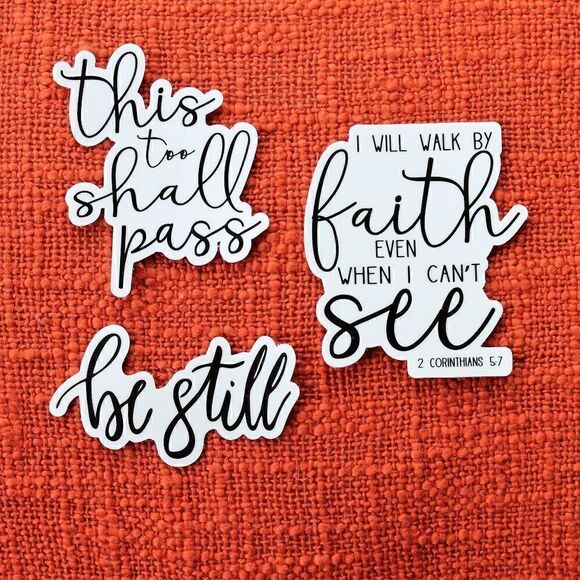 this
too
shall
pass
I WILL WALK BY
faith
EVEN
WHEN I CAN'T
see
2 CORINTHIANS 5:7
be still